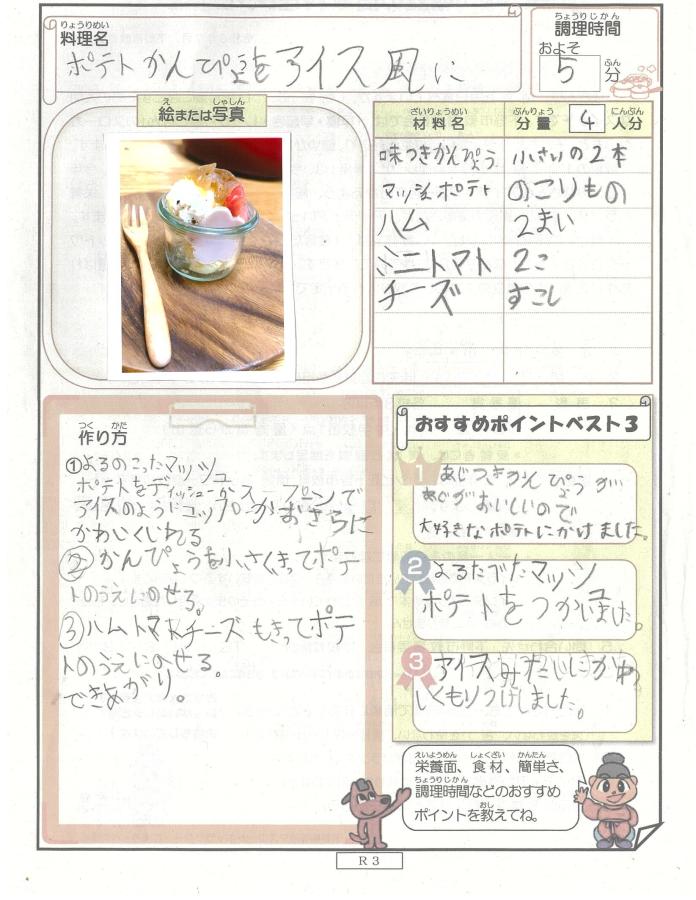 りょうりめい
料理名
ポテトかんぴょうをアイス風に
ちょうりじかん
調理時間
およそ
5 分
ふん
え しゃしん
絵または写真
ざいりょうめい
材料名
ぶんりょう にんぶん
分量 4 人分
味つきかんぴょう 小さいの2本
マッシュポテト のこりもの
ハム 2まい
ミニトマト 2こ
チーズ すこし
つく かた
作り方
①よるのこったマッシュ
ポテトをディッシューかスープーンで
アイスのようにコップかおさらに
かわいくいれる
②かんぴょうを小さくきってポテ
トのうえにのせる。
③ハムトマトチーズもきってポテ
トのうえにのせる。
できあがり。
おすすめポイントベスト3
1
あじつきかんぴょうが
あじがおいしいので
大好きなポテトにかけました。
2
よるたべたマッシュ
ポテトをつかいました。
3
アイスみたいにかわい
しくもりつけしました。
えいようめん しょくざい かんたん
栄養面、食材、簡単さ、
ちょうりじかん
調理時間などのおすすめ
おし
ポイントを教えてね。
R3